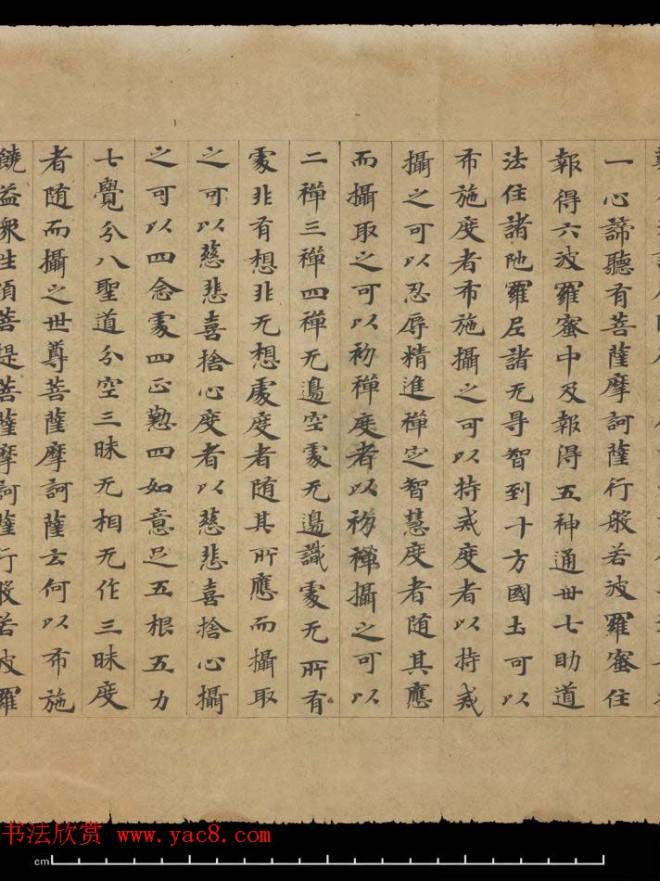 一心諦聽有菩薩摩訶薩行般若波羅蜜住
報得六波羅蜜中及報得五神通卅七助道
法住諸陁羅尼諸无㝵智到十方國土可以
布施度者布施攝之可以持戒度者以持戒
攝之可以忍辱精進禪定智慧度者随其應
而攝取之可以初禪度者以初禪攝之可以
二禪三禪四禪无邊空處无邊識處无所有
處非有想非无想處度者随其所應而攝取
之可以慈悲喜捨心度者以慈悲喜捨心攝
之可以四念處四正懃四如意足五根五力
七覺分八聖道分空三昧无相无作三昧度
者随而攝之世尊菩薩摩訶薩云何以布施
饒益衆生須菩提菩薩摩訶薩行般若波羅
书法欣赏 www.yac8.com
cm